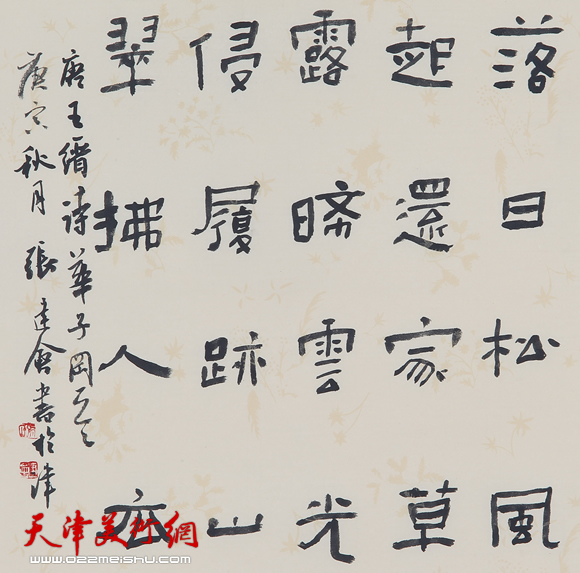 落日松風
起還家草
露晞雲光
侵履跡山
翠拂人衣
唐王縉詩華子岡一之
庚寅秋月張建會書於津
天津美術網
www.022meishu.com